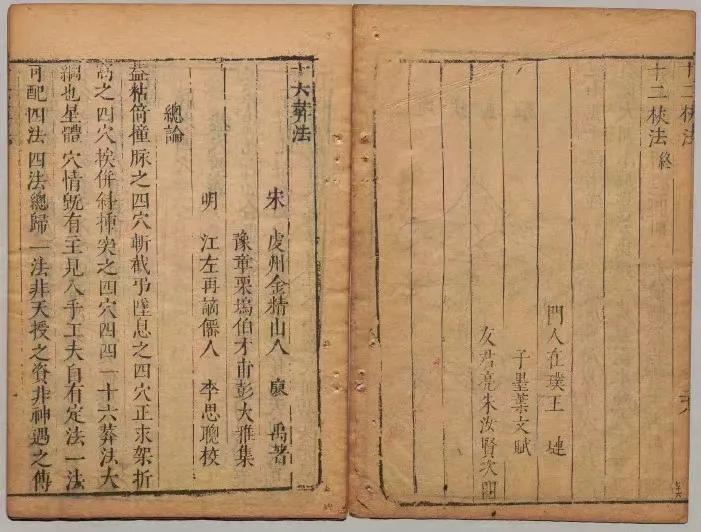 十二杖法
十二杖法 終
門人在璞王
子墨葉文賦
友君亮朱汝賢次閱
十六葬法
宋 虔州金精山人 廖 禹著
豫章栗塢伯才甫彭大雅集
明 江左再謫僊人 李思聰校
總論
盖粘倚撞脉之四穴斬截弔墜息之四穴正求架折
窩之四穴挨併斜揷突之四穴四四一十六葬法大
綱也星體穴情旣有主見入手工夫自有定法一法
可配四法四法總歸一法非天授之資非神遇之傳